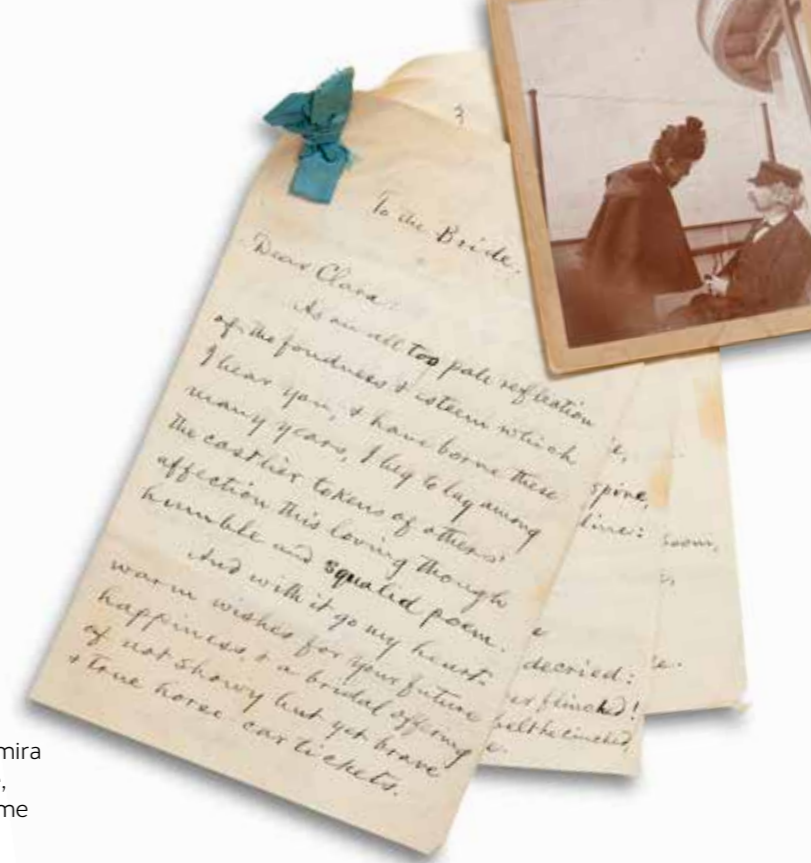 3
To the Bride.
Dear Clara:
As an all too pale reflection
of the fondness & esteem which
I bear you, & have borne these
many years, I beg to lay among
the costlier tokens of others'
affection this loving though
humble and squalid poem.
And with it go my heart-
warm wishes for your future
happiness, & a bridal offering
of not showy but yet brave
& true horse car tickets.
spine,
line:
decried:
flinched!
belt he cinched,
mira
me